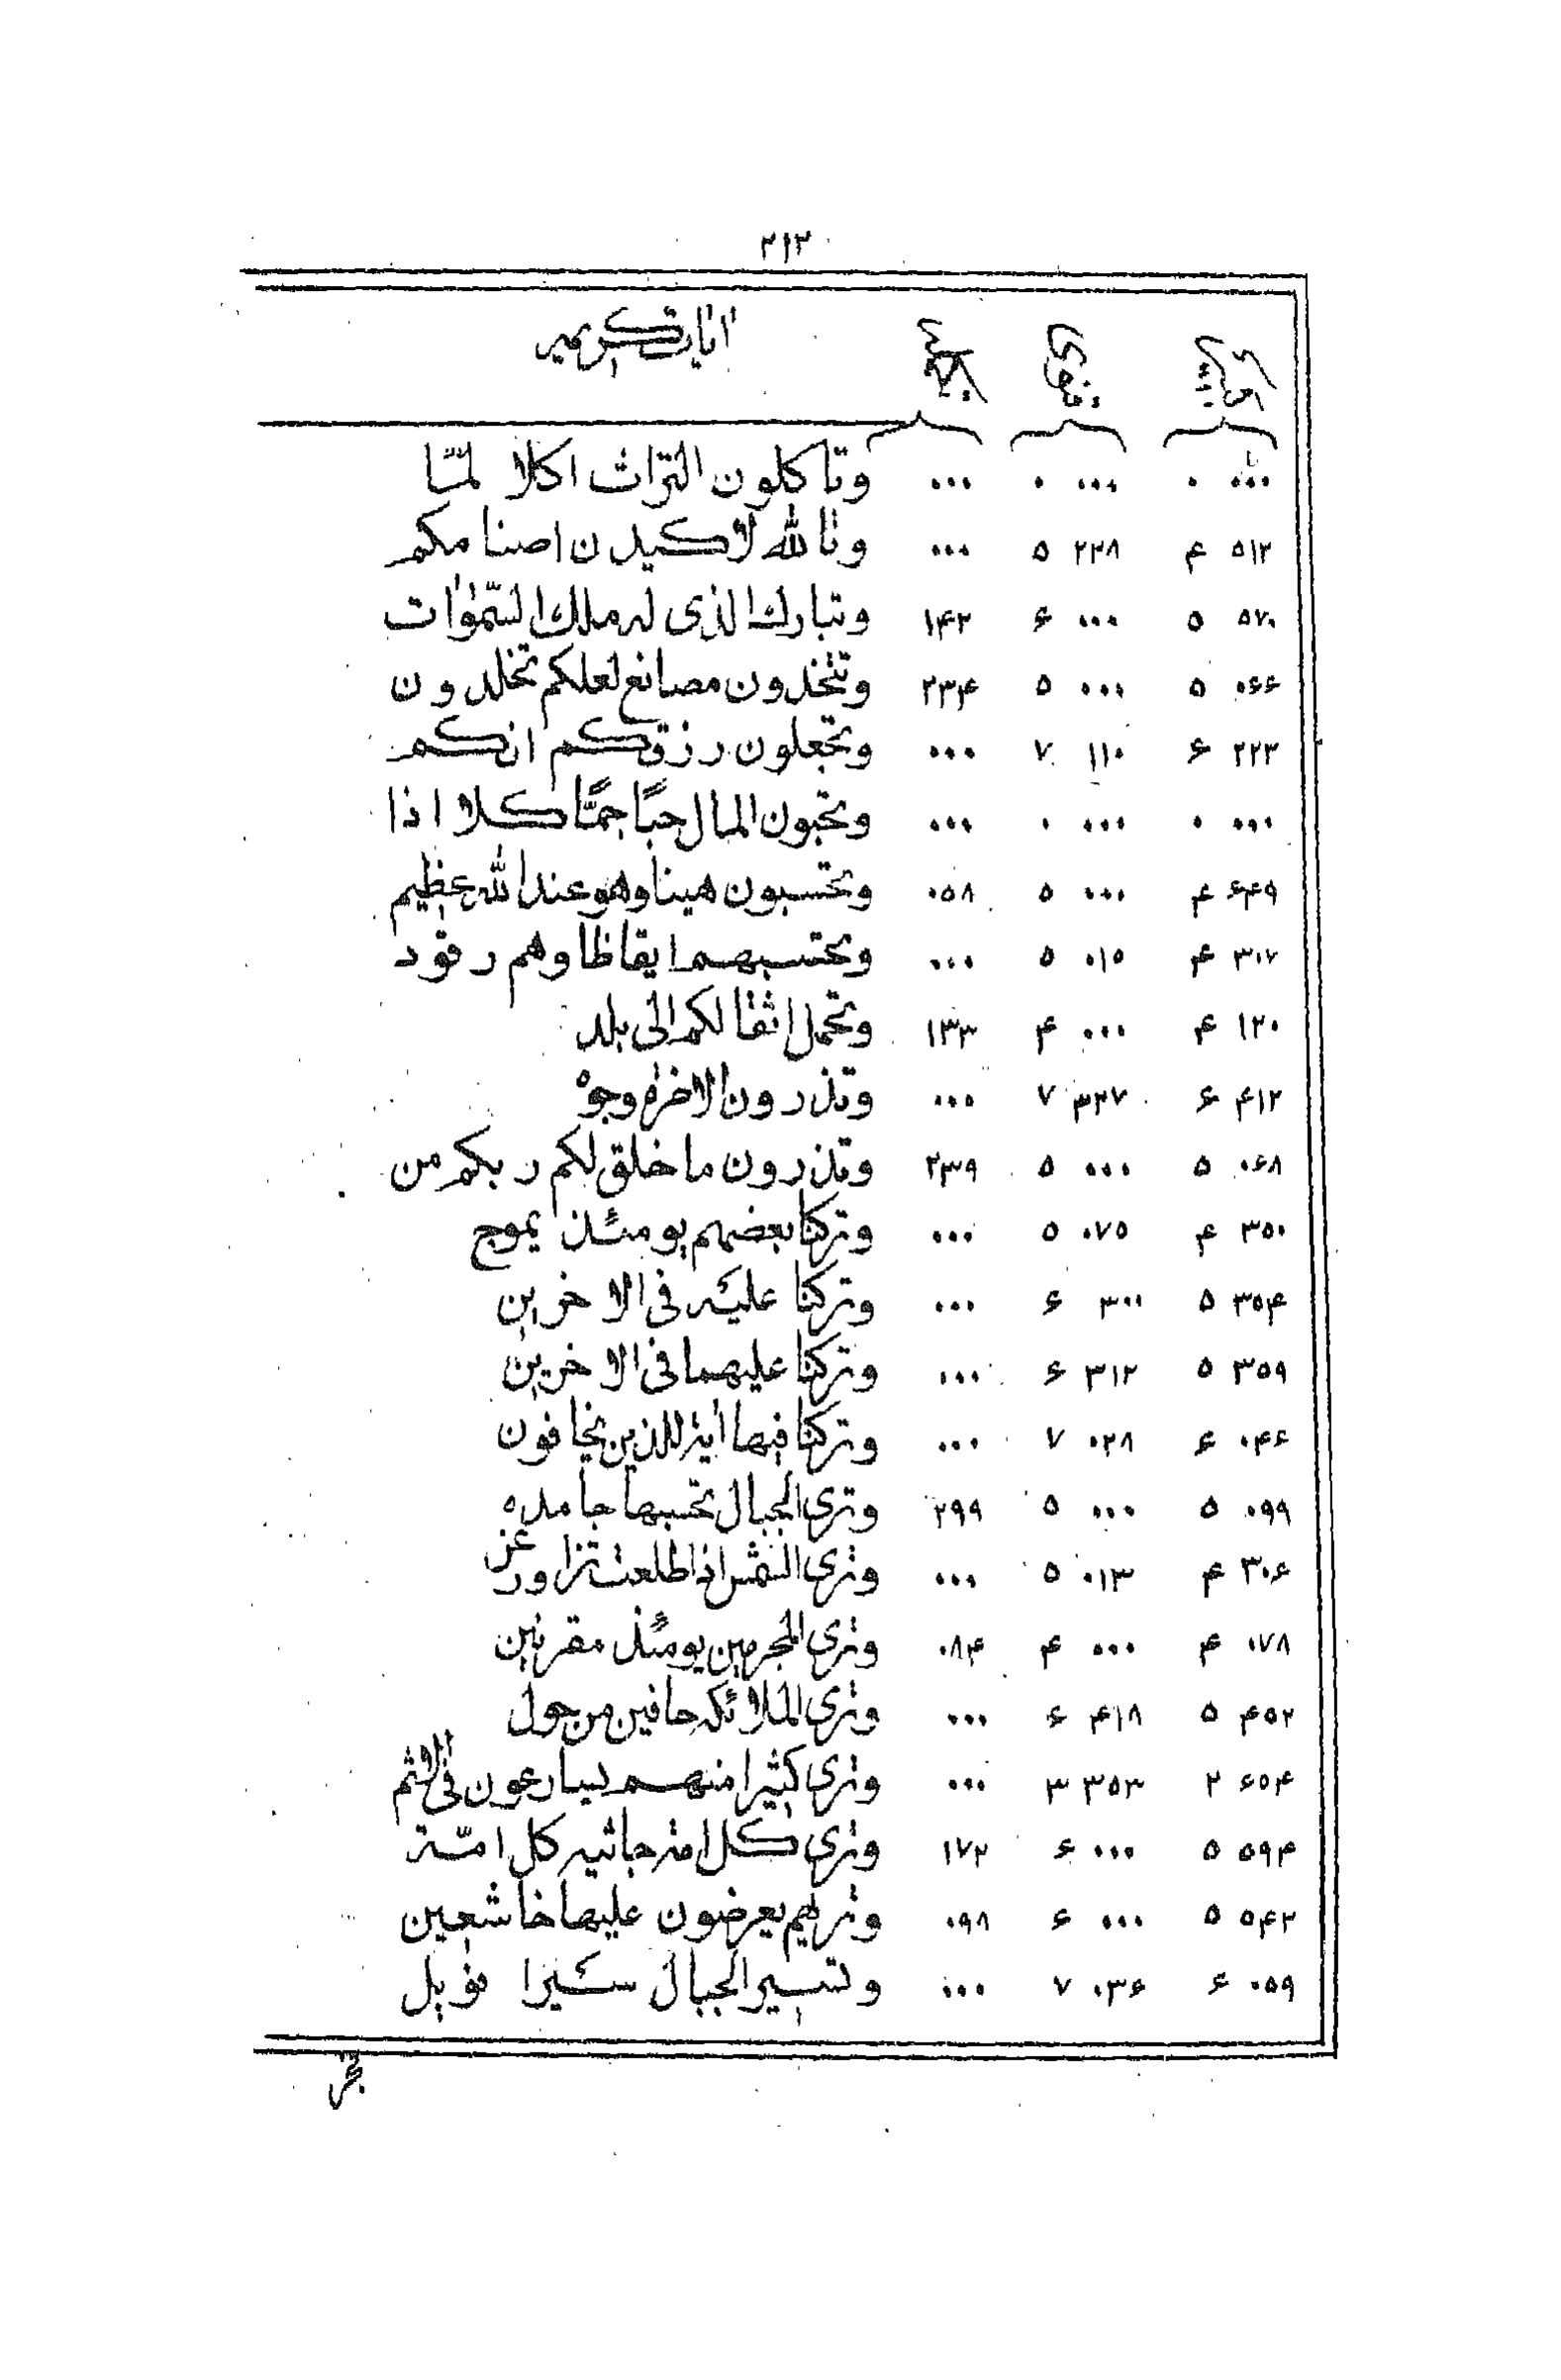 ٢١٣
ايات كريمه
٠٠٠ ٠ ٠٠٠ ٠ ٠٠٠ وتاكلون التراث اكلا لمّا
٥١٢ ۴ ٢٣٨ ٥ ٠٠٠ وتالله لاكيدن اصنامكم
٥٧٠ ٥ ٠٠٠ ۶ ١۴٢ وتبارك الذى له ملك السّمٰوات
٠۶۶ ٥ ٠٠٠ ٥ ٢٣۴ وتتخذون مصانع لعلكم تخلدون
٢٢٣ ۶ ١١٠ ٧ ٠٠٠ وتجعلون رزقكم انكم
٠٠٠ ٠ ٠٠٠ ٠ ٠٠٠ وتحبون المال حبًا جمًّا كلا اذا
۶۴٩ ۴ ٠٠٠ ٥ ٠٥٨ وتحسبون هينا وهو عند الله عظيم
٣٠٧ ۴ ٠١٥ ٥ ٠٠٠ وتحسبهم ايقاظا وهم رقود
١٢٠ ۴ ٠٠٠ ۴ ١٣٣ وتحمل اثقالكم الى بلد
۴١٢ ۶ ٣٣٧ ٧ ٠٠٠ وتذرون الاخره وجوه
٠۶٨ ٥ ٠٠٠ ٥ ٢٣٩ وتذرون ما خلق لكم ربكم من
٣٥٠ ۴ ٠٧٥ ٥ ٠٠٠ وتركنا بعضهم يومئذ يموج
٣٥۴ ٥ ٣٠٠ ۶ ٠٠٠ وتركنا عليه فى الاخرين
٣٥٩ ٥ ٣١٢ ۶ ٠٠٠ وتركنا عليهما فى الاخرين
٠۴۶ ۶ ٠٢٨ ٧ ٠٠٠ وتركنا فيها اية للذين يخافون
٠٩٩ ٥ ٠٠٠ ٥ ٢٩٩ وترى الجبال تحسبها جامده
٣٠۶ ۴ ٠١٣ ٥ ٠٠٠ وترى الشمس اذا طلعت تزاور عن
٠٧٨ ۴ ٠٠٠ ۴ ٠٨۴ وترى المجرمين يومئذ مقرنين
۴٥٢ ٥ ۴١٨ ۶ ٠٠٠ وترى الملائكه حافين من حول
۶٥۴ ٢ ٣٥٣ ٣ ٠٠٠ وترى كثيرا منهم يسارعون فى الاثم
٥٩۴ ٥ ٠٠٠ ۶ ١٧٢ وترى كل امة جاثيه كل امّة
٥۴٢ ٥ ٠٠٠ ۶ ٠٩٨ وتريهم يعرضون عليها خاشعين
٠٥٩ ۶ ٠٣۶ ٧ ٠٠٠ وتسير الجبال سيرا فويل